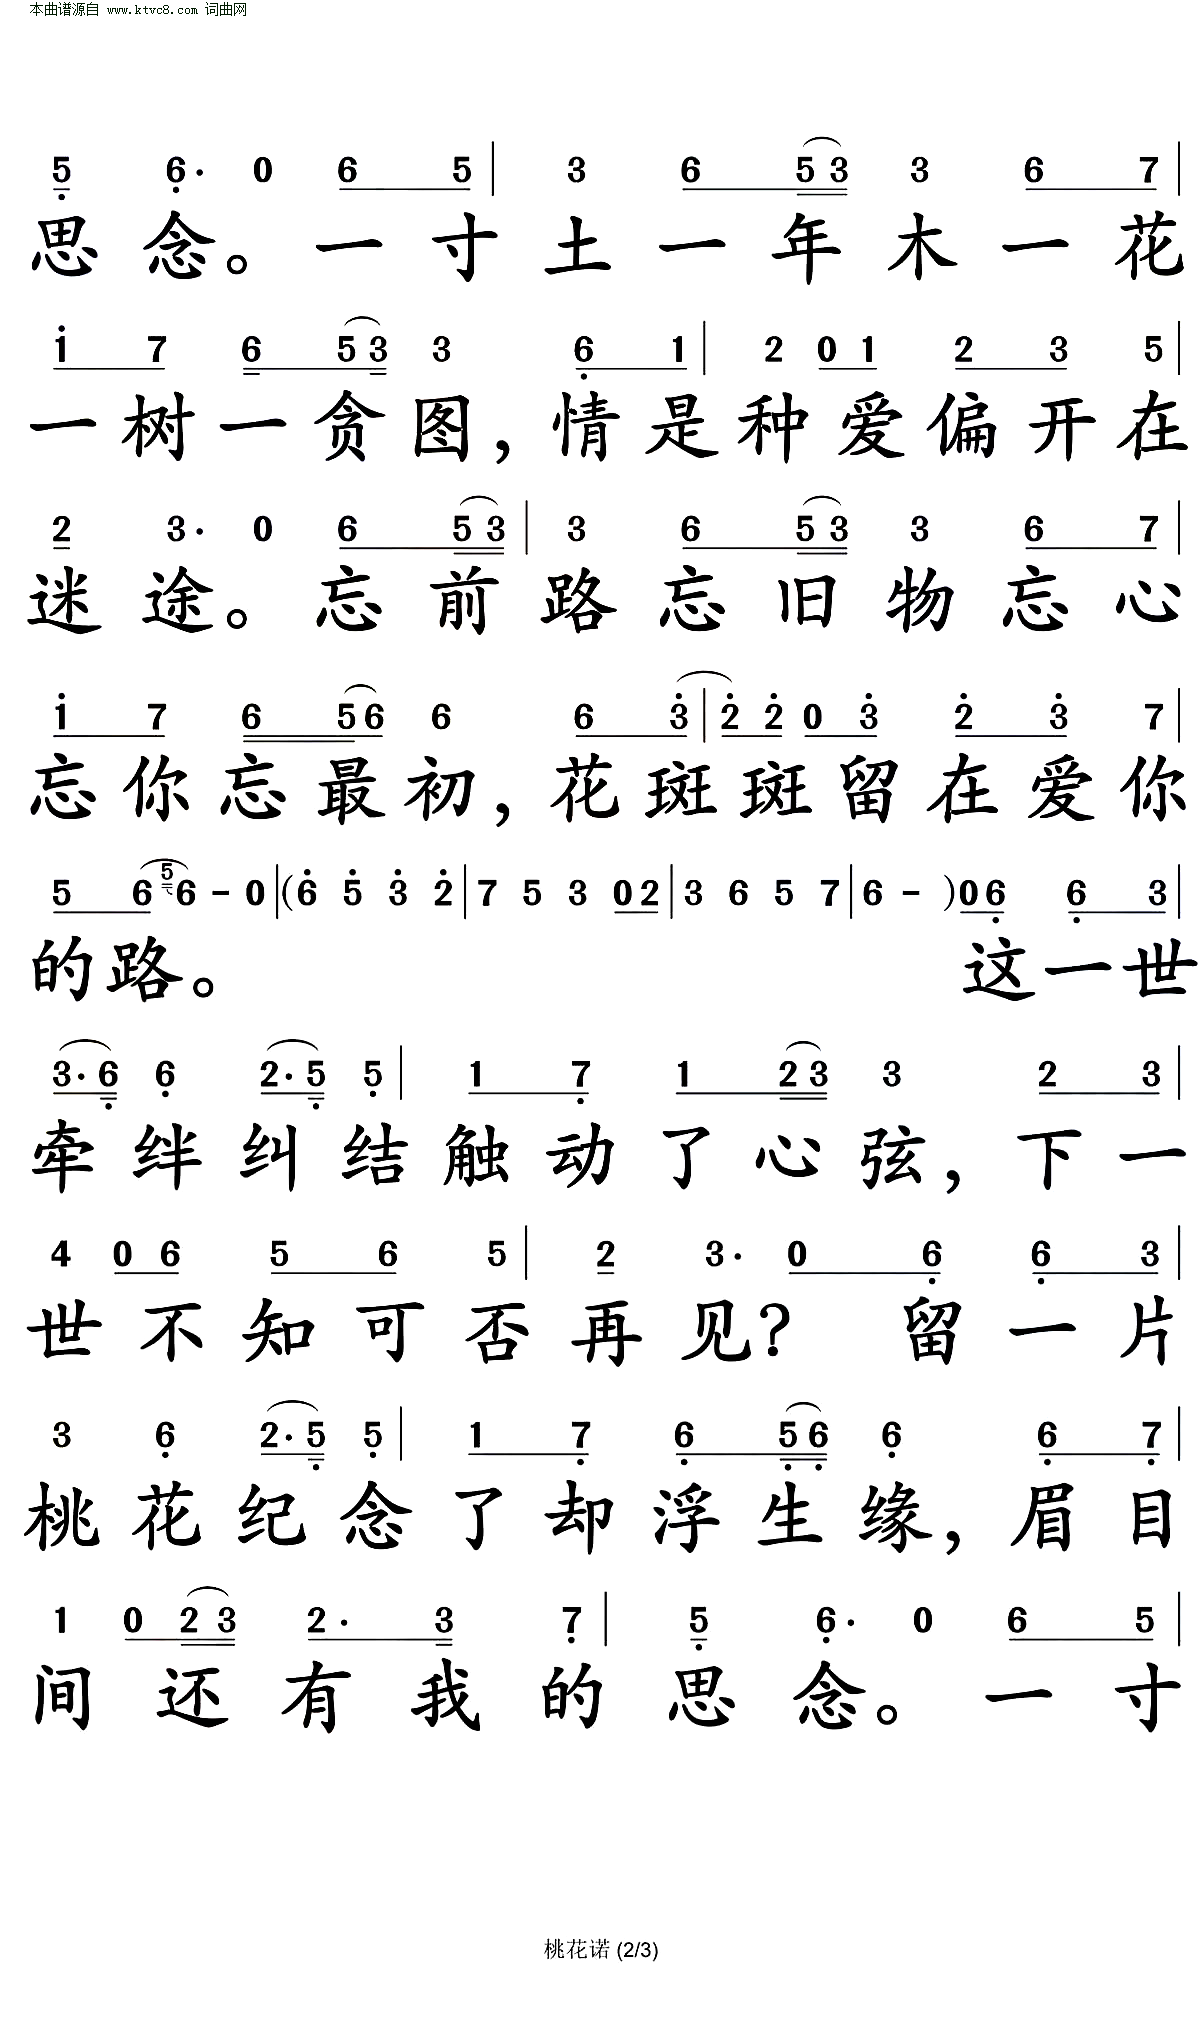 本曲谱源自 www.ktvc8.com 词曲网
5 6· 0 6 5 | 3 6 5 3 3 6 7 |
思念。一寸土一年木一花
1 7 6 5 3 3 6 1 | 2 0 1 2 3 5 |
一树一贪图，情是种爱偏开在
2 3· 0 6 5 3 | 3 6 5 3 3 6 7 |
迷途。忘前路忘旧物忘心
1 7 6 5 6 6 6 3 | 2 2 0 3 2 3 7 |
忘你忘最初，花斑斑留在爱你
5 6 5 6 - 0 | ( 6 5 3 2 | 7 5 3 0 2 | 3 6 5 7 | 6 - ) 0 6 6 3 |
的路。 这一世
3· 6 6 2· 5 5 | 1 7 1 2 3 3 2 3 |
牵绊纠结触动了心弦，下一
4 0 6 5 6 5 | 2 3· 0 6 6 3 |
世不知可否再见？ 留一片
3 6 2· 5 5 | 1 7 6 5 6 6 6 7 |
桃花纪念了却浮生缘，眉目
1 0 2 3 2· 3 7 | 5 6· 0 6 5 |
间还有我的思念。一寸
桃花诺 (2/3)